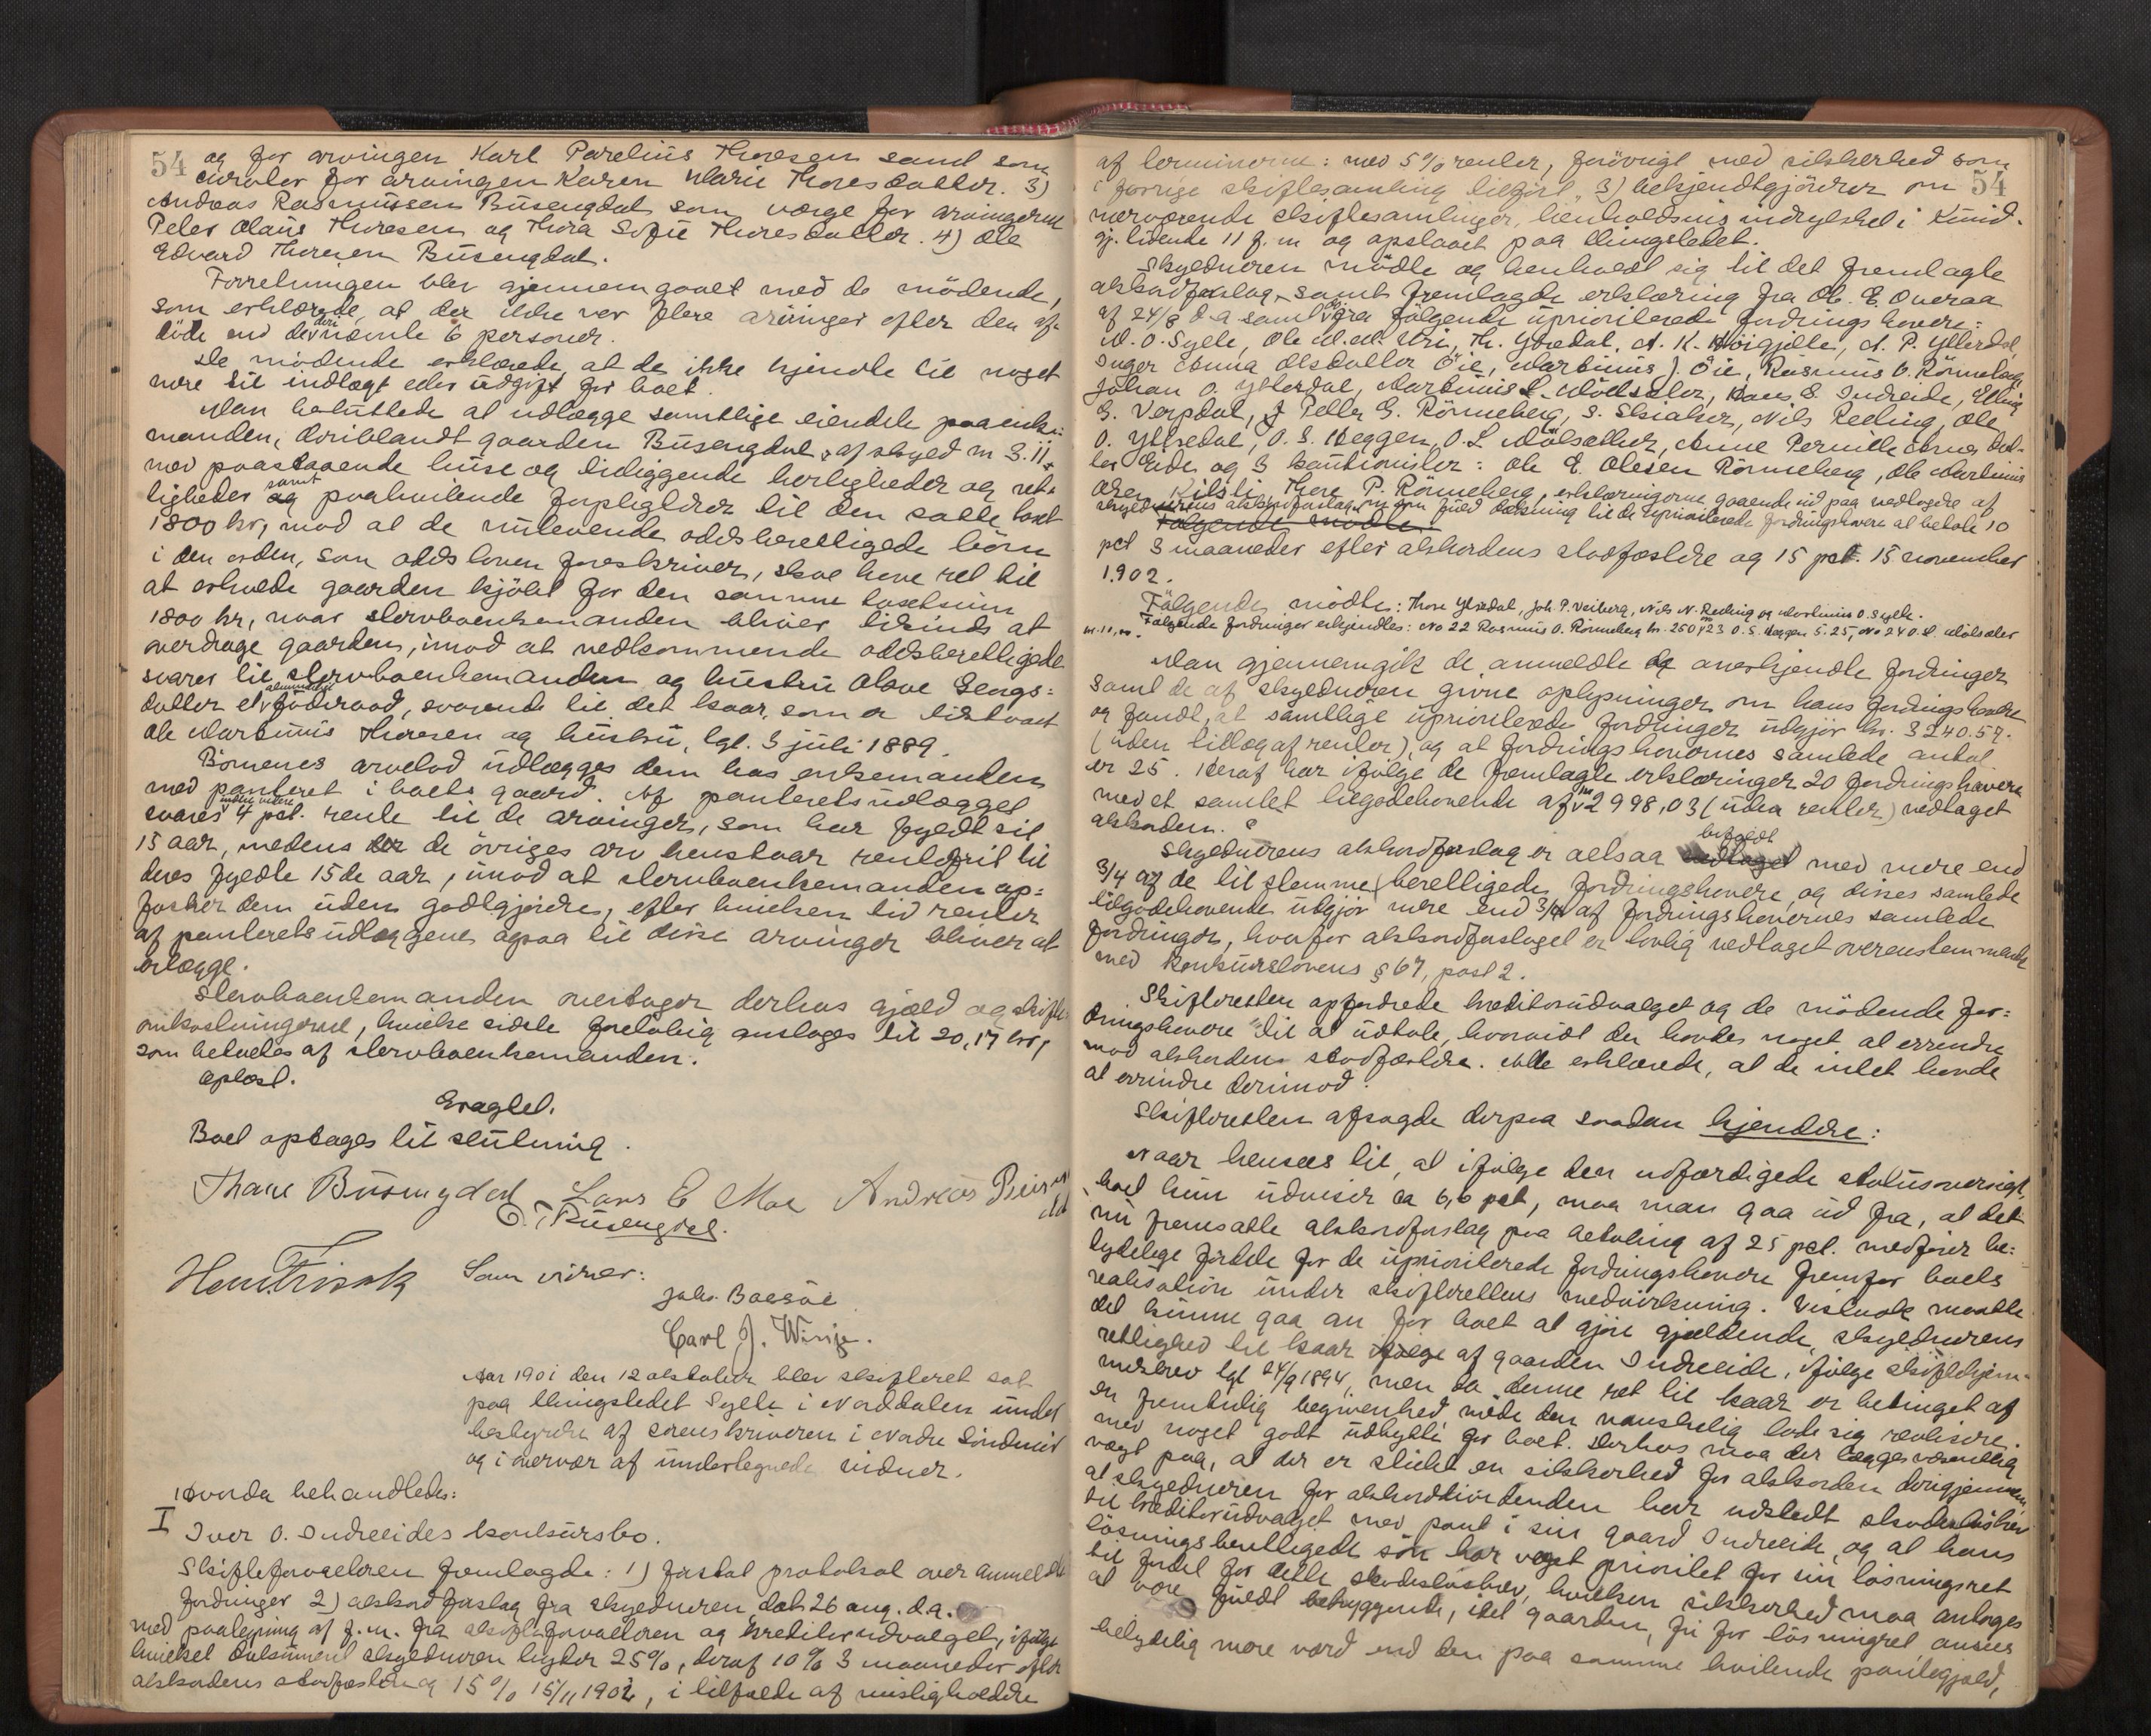 54
og for arvingen Karl Parelius Thoresen samt som
curator for arvingen Karen Marie Thoresdatter. 3)
Andreas Rasmussen Busengdal som værge for arvingerne
Peter Olaus Thoresen og Thora Sofie Thoresdatter. 4) Ole
Edvard Thoresen Busengdal.
Forretningen blev gjennemgaaet med de mødende,
som erklærede, at der ikke var flere arvinger efter den af-
døde end de deri nævnte 6 personer.
De mødende erklærede, at de ikke kjendte til noget
mere til indtægt eller udgift for boet.
Man besluttede at udlægge samtlige eiendele paa enke-
manden, deriblandt gaarden Busengdal, af skyld m 3.11,
med paastaaende huse og tilliggende herligheder og ret-
tigheder og samt paahvilende forpligtelser til den satte taxt
1800 kr, mod at de nulevende oddsberettigede børn
i den orden, som oddsloven foreskriver, skal have ret til
at erholde gaarden kjøbt for den samme taxtsum
1800 kr, naar stervboenkemanden bliver tilsinds at
overdrage gaarden, imod at vedkommende oddsberettigede
svarer til stervboenkemanden og hustru Olave Bengs-
datter et almindeligt føderaad, svarende til det kaar, som er tilstaaet
Ole Martinus Thoresen og hustru, lgl. 3 juli 1889.
Børnenes arvelod udlægges dem hos enkemanden
med panteret i boets gaard. Af panteretsudlægget
svares indtil videre 4 pct. rente til de arvinger, som har fyldt sit
15 aar, medens der de øvriges arv henstaar rentefrit til
deres fyldte 15de aar, imod at stervboenkemanden op-
fostrer dem uden godtgjørelse, efter hvilken tid renter
af panteretsudlæggene ogsaa til disse arvinger bliver at
erlægge.
Stervboenkemanden overtager derhos gjæld og skifte-
omkostningerne, hvilke sidste foreløbig anslages til 20,17 kr,
som betales af stervboenkemanden.
Oplæst.
Eragtet.
Boet optages til slutning.
Thore Busengdal Lars E Moe Andreas Busengdal
O. T. Busengdal.
Som vidner:
Joh. Baasøe
Carl J. Winje.
Aar 1901 den 12 oktober blev skifteret sat
paa thingstedet Sylte i Norddalen under
bestyrelse af sorenskriveren i Nordre Søndmør
og i overvær af undertegnede vidner.
Hvorda behandledes:
I
Iver O. Indreeides konkursbo.
Skifteforvalteren fremlagde: 1) fortsat protokol over anmeldte
fordringer 2) akkordforslag fra skyldneren dat. 26 aug. d.a.
med paategning af f.m. fra skifteforvalteren og kreditorudvalget, ifølge
hvilket dokument skyldneren byder 25%, deraf 10% 3 maaneder efter
akkordens stadfæstelse og 15% 15/11 1902, i tilfælde af misligholdelse
54
af terminerne: med 5% renter, forøvrigt med sikkerhed som
i forrige skiftesamling tilført, 3) bekjendtgjørelser om
nærværende skiftesamlinger, henholdsvis indrykket i Kund-
gj. tidende 11 f. m og opslaaet paa thingstedet.
Skyldneren mødte og henholdt sig til det fremlagte
akkordforslag, samt fremlagde erklæring fra Ole E. Overaa
af 24/8 d.a samt og fra følgende upriorilerede fordringshavere:
M. O. Sylte, Ole M. M. Uri, Th. Ytredal, A. K. Høigjelle, A. P. Ytterdal,
Inger Anna Olsdatter Øie, Martinus J. Øie, Rasmus O. Rønneberg,
Johan O. Ytterdal, Martinus L. Mølsæter, Hans E. Indreide, Elling
G. Verpdal, J Petter E. Rønneberg, S. Skiaker, Nils Reeling, Ole
O. Yttredal, O. S. Heggen, O. L Mølsætter, Anne Pernille Arnesdat-
ter Eide og 3 kautionister: Ole E. Olesen Rønneberg, Ole Martinus
Olsen Kilsti, Thore P. Rønneberg, erklæringerne gaaende ud paa vedtagelse af
skyldnerens akkordforslag, om fuld dækning til de upriorilerede fordringshavere at betale 10
Følgende mødte
pct 3 maaneder efter akkordens stadfæstelse og 15 pct. 15 november
1902.
Følgende mødte: Thore Ytredal, Joh. P. Veiberg, Nils N. Reeling og Martinus O. Sylte.
Følgende fordringer erkjendtes: No 22 Rasmus O. Rønneberg kr. 250, No 23 O. S. Heggen 5.25, No 24 O. L. Mølsæter
kr. 10,00.
Man gjennemgik de anmeldte og anerkjendte fordringer
samt de af skyldneren givne oplysninger om hans fordringshavere
og fandt, at samtlige upriorilerede fordringer udgjør kr. 3240.57.
(uden tillæg af renter), og at fordringshavernes samlede antal
er 25. Heraf har ifølge de fremlagte erklæringer 20 fordringshavere
med et samlet tilgodehavende af kr 2998,03 (uden renter) vedtaget
akkorden.
Skyldnerens akkordforslag er altsaa vedtaget bifaldt med mere end
3/4 af de til stemme berettigede fordringshavere, og disses samlede
tilgodehavende udgjør mere end 3/4 af fordringshavernes samlede
fordringer, hvorfor akkordforslaget er lovlig vedtaget overenstemmende
med konkurslovens § 67, post 2.
Skifteretten opfordrede kreditorudvalget og de mødende for-
dringshavere til at udtale, hvorvidt der havdes noget at erindre
mod akkordens stadfæstelse. Alle erklærede, at de intet havde
at erindre derimod.
Skifteretten afsagde derpaa saadan kjendelse:
Naar hensees til, at ifølge den udfærdigede statusoversigt
boet kun udviser ca 6,6 pct, maa man gaa ud fra, at det
nu fremsatte akkordforslag paa betaling af 25 pct. medfører be-
tydelige fordele for de upriorilerede fordringshavere fremfor boets
realisation under skifterettens medvirkning. Vistnok maatte
det kunne gaa an for boet at gjøre gjældende skyldnerens
rettighed til kaar ifølge af gaarden Indreeide, ifølge skifteskjøn-
merbrev lgl 24/9 1894, men da denne ret til kaar er betinget af
en fremtidig begivenhed, vilde den vanskelig lade sig realisere
med noget godt udbytte for boet. Derhos maa der lægges væsentlig
vægt paa, at der er stillet en sikkerhed for akkorden derigjennem,
at skyldneren for akkorddividenden har udstedt skadesløsbrev
til kreditorudvalget med pant i sin gaard Indreeide, og at hans
løsningsberettigede søn har veget prioritet for sin løsningsret
til fordel for dette skadesløsbrev, hvilken sikkerhed maa antages
at være fuldt betryggende, idet gaarden, fri for løsningsret ansees
betydelig mere værd end den paa samme hvilende pantegjæld,